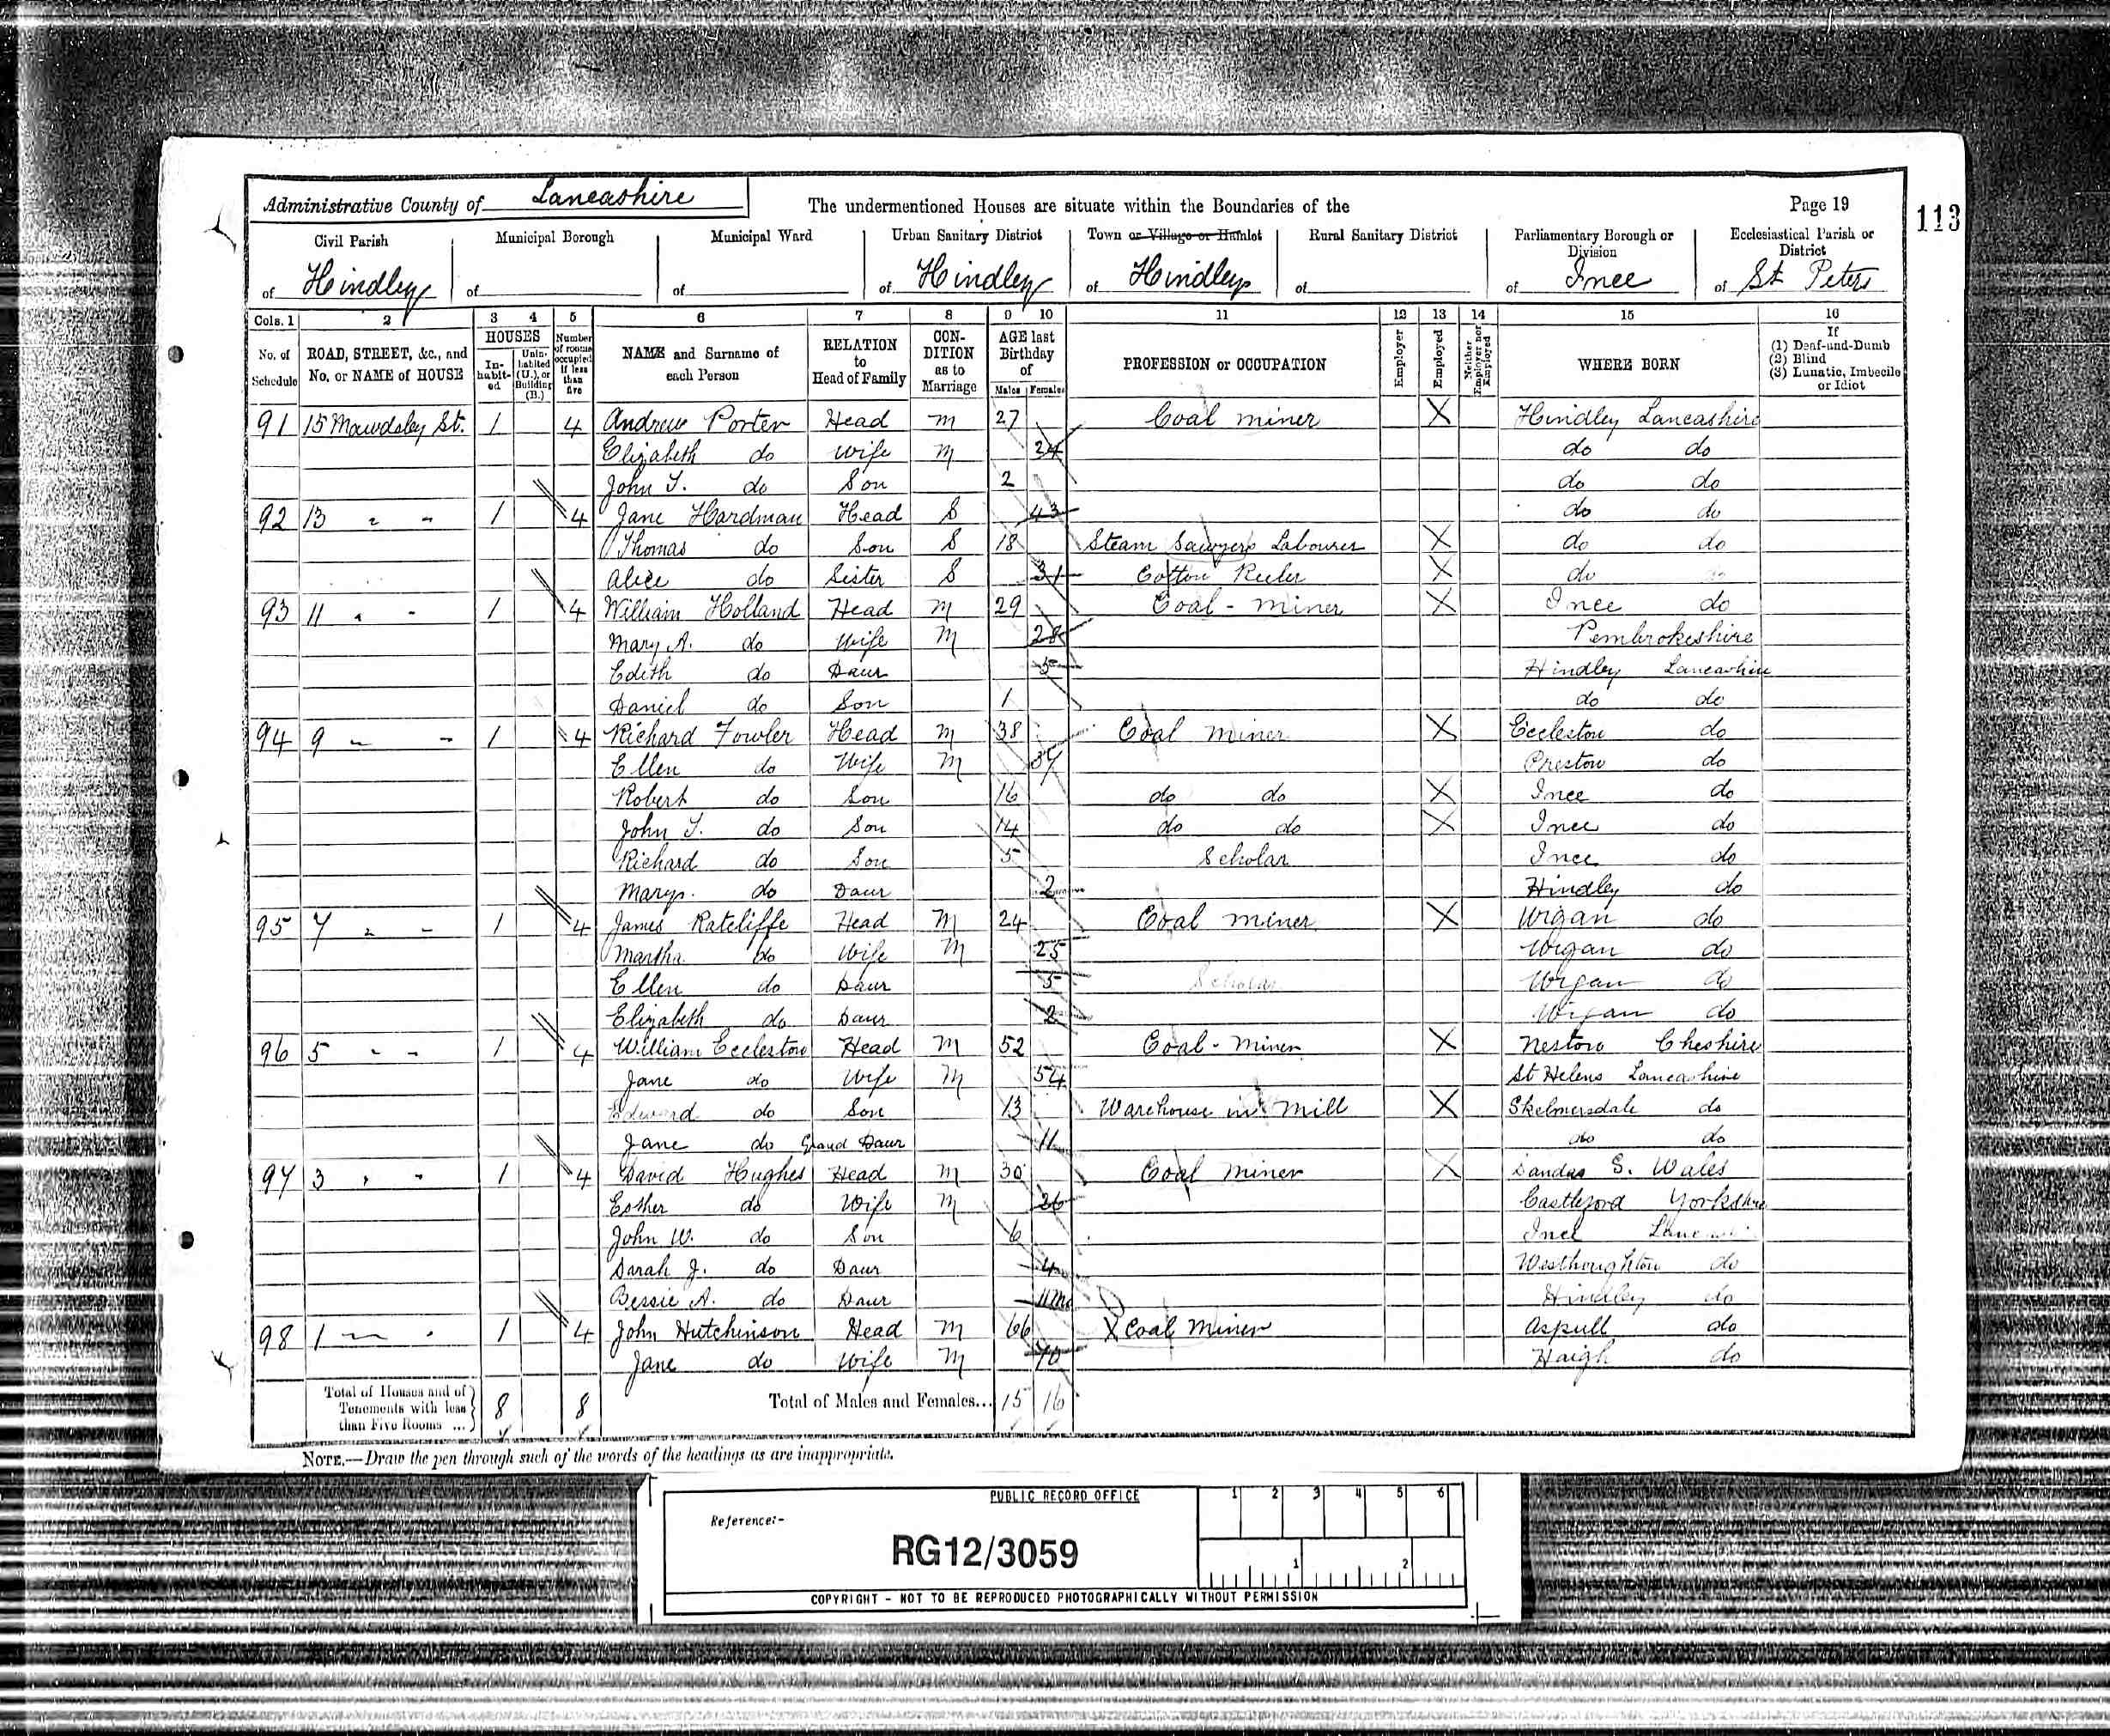 Administrative County of Lancashire The undermentioned Houses are situate within the Boundaries of the Page 19
113
Civil Parish Municipal Borough Municipal Ward Urban Sanitary District Town or Village or Hamlet Rural Sanitary District Parliamentary Borough or Division Ecclesiastical Parish or District
of Hindley of of of Hindley of Hindley of of Ince of St Peters
Cols. 1 2 3 4 5 6 7 8 9 10 11 12 13 14 15 16
No. of Schedule ROAD, STREET, &c., and No. or NAME of HOUSE HOUSES In-habit-ed Unin-habited (U.), or Building (B.) Number of rooms occupied if less than five NAME and Surname of each Person RELATION to Head of Family CON-DITION as to Marriage AGE last Birthday of Males Females PROFESSION or OCCUPATION Employer Employed Neither Employer nor Employed WHERE BORN If (1) Deaf-and-Dumb (2) Blind (3) Lunatic, Imbecile or Idiot
91 15 Mawdsley St. 1 4 Andrew Porter Head M 27 Coal miner X Hindley Lancashire
Elizabeth do Wife M 24 do do
John T. do Son 2 do do
92 13 " " 1 4 Jane Hardman Head S 43 do do
Thomas do Son S 18 Steam Sawyers Labourer X do do
Alice do Sister S 31 Cotton Reeler X do
93 11 " " 1 4 William Holland Head M 29 Coal - miner X Ince do
Mary A. do Wife M 28 Pembrokeshire
Edith do Daur 5 Hindley Lancashire
Daniel do Son 1 do do
94 9 " " 1 4 Richard Fowler Head M 38 Coal miner X Eccleston do
Ellen do Wife M 37 Preston do
Robert do Son 16 do do X Ince do
John T. do Son 14 do do X Ince do
Richard do Son 5 Scholar Ince do
Mary. do Daur 2 Hindley do
95 7 " " 1 4 James Ratcliffe Head M 24 Coal miner X Wigan do
Martha do Wife M 25 Wigan do
Ellen do Daur 5 Scholar Wigan do
Elizabeth do Daur 2 Wigan do
96 5 " " 1 4 William Eccleston Head M 52 Coal - Miner X Neston Cheshire
Jane do Wife M 54 St Helens Lancashire
Edward do Son 13 Warehouse in Mill X Skelmersdale do
Jane do Grand Daur 11 do do
97 3 " " 1 4 David Hughes Head M 30 Coal Miner X S. Wales
Esther do Wife M 26 Castleford Yorkshire
John W. do Son 6 Ince
Sarah J. do Daur 4 Westhoughton do
Bessie A. do Daur 11 Mo Hindley do
98 1 " " 1 4 John Hutchinson Head M 66 X Coal Miner Aspull do
Jane do Wife M 70 Haigh do
Total of Houses and of Tenements with less than Five Rooms ... 8 8 Total of Males and Females... 15 16
NOTE.—Draw the pen through such of the words of the headings as are inappropriate.
PUBLIC RECORD OFFICE 1 2 3 4 5 6
Reference:-
RG12/3059 1 2
COPYRIGHT - NOT TO BE REPRODUCED PHOTOGRAPHICALLY WITHOUT PERMISSION